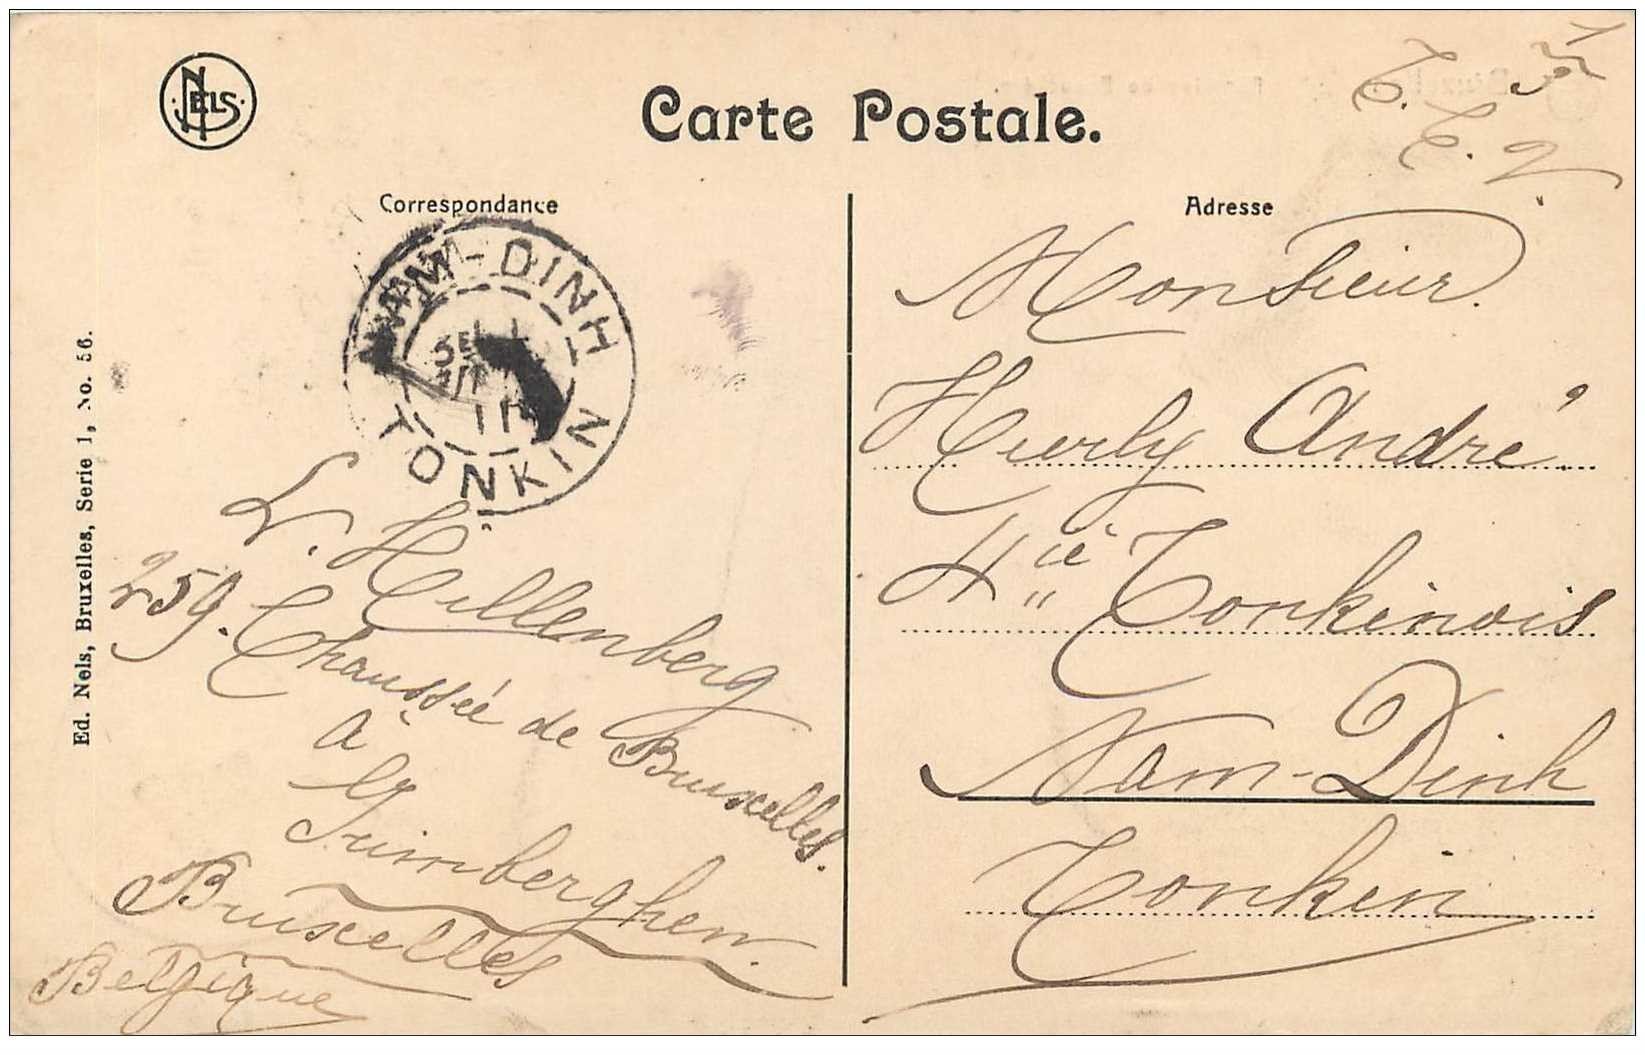 NELS
Carte Postale.
T. C. 2
Correspondance
Adresse
NAM-DINH
TONKIN
Monsieur
Hurly André.
4 ie Tonkinois
Nam-Dinh
Tonkin
L. Hillenberg
259. Chaussée de Bruxelles.
à
Grimberghen.
Bruxelles
Belgique
Ed. Nels, Bruxelles, Serie 1, No. 56.